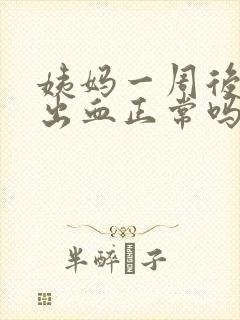 姨妈一周後
出血正常吗
半醉 子